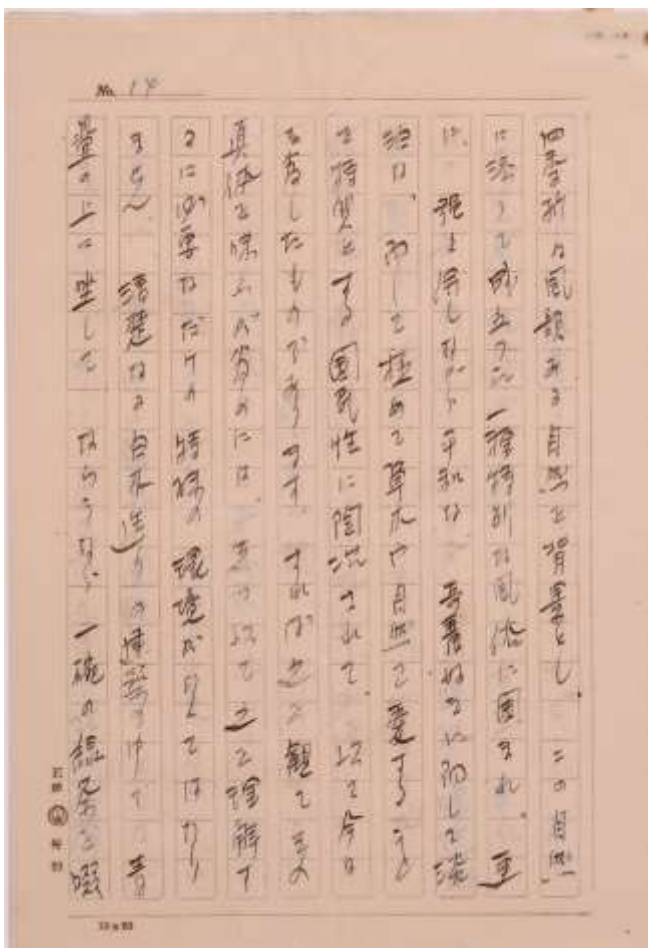 No. 14
四季折々風韻ある自然を背景とし、この自然
に添うて成立つた一種特別な風流に囲まれ、更
に、強き浮しながら平和な、善良ぬるに而して淡
泊な、而して極めて草木や自然を愛すること
を特質とする国民性に陶汰されて、以て今日
を為したものであります。すれば之を観てその
真価を味ふが為めには、亦以て之を理解す
るに必要なだけの特殊の環境がなくてはなり
ません。清楚なる白木造りの建築の中で、青
畳の上に坐して ならうなら、一碗の緑茶を啜